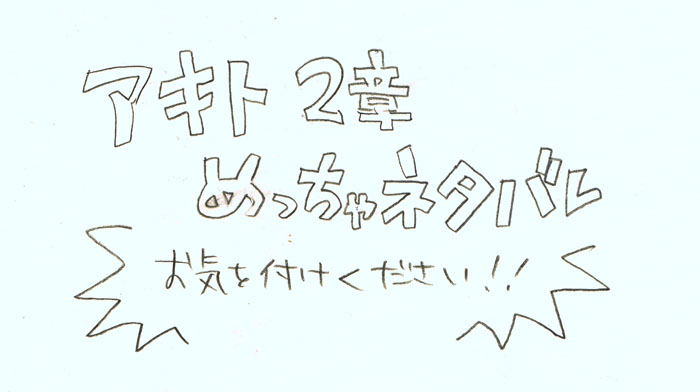 アキト 2章
めっちゃネタバレ
お気を付けください!!